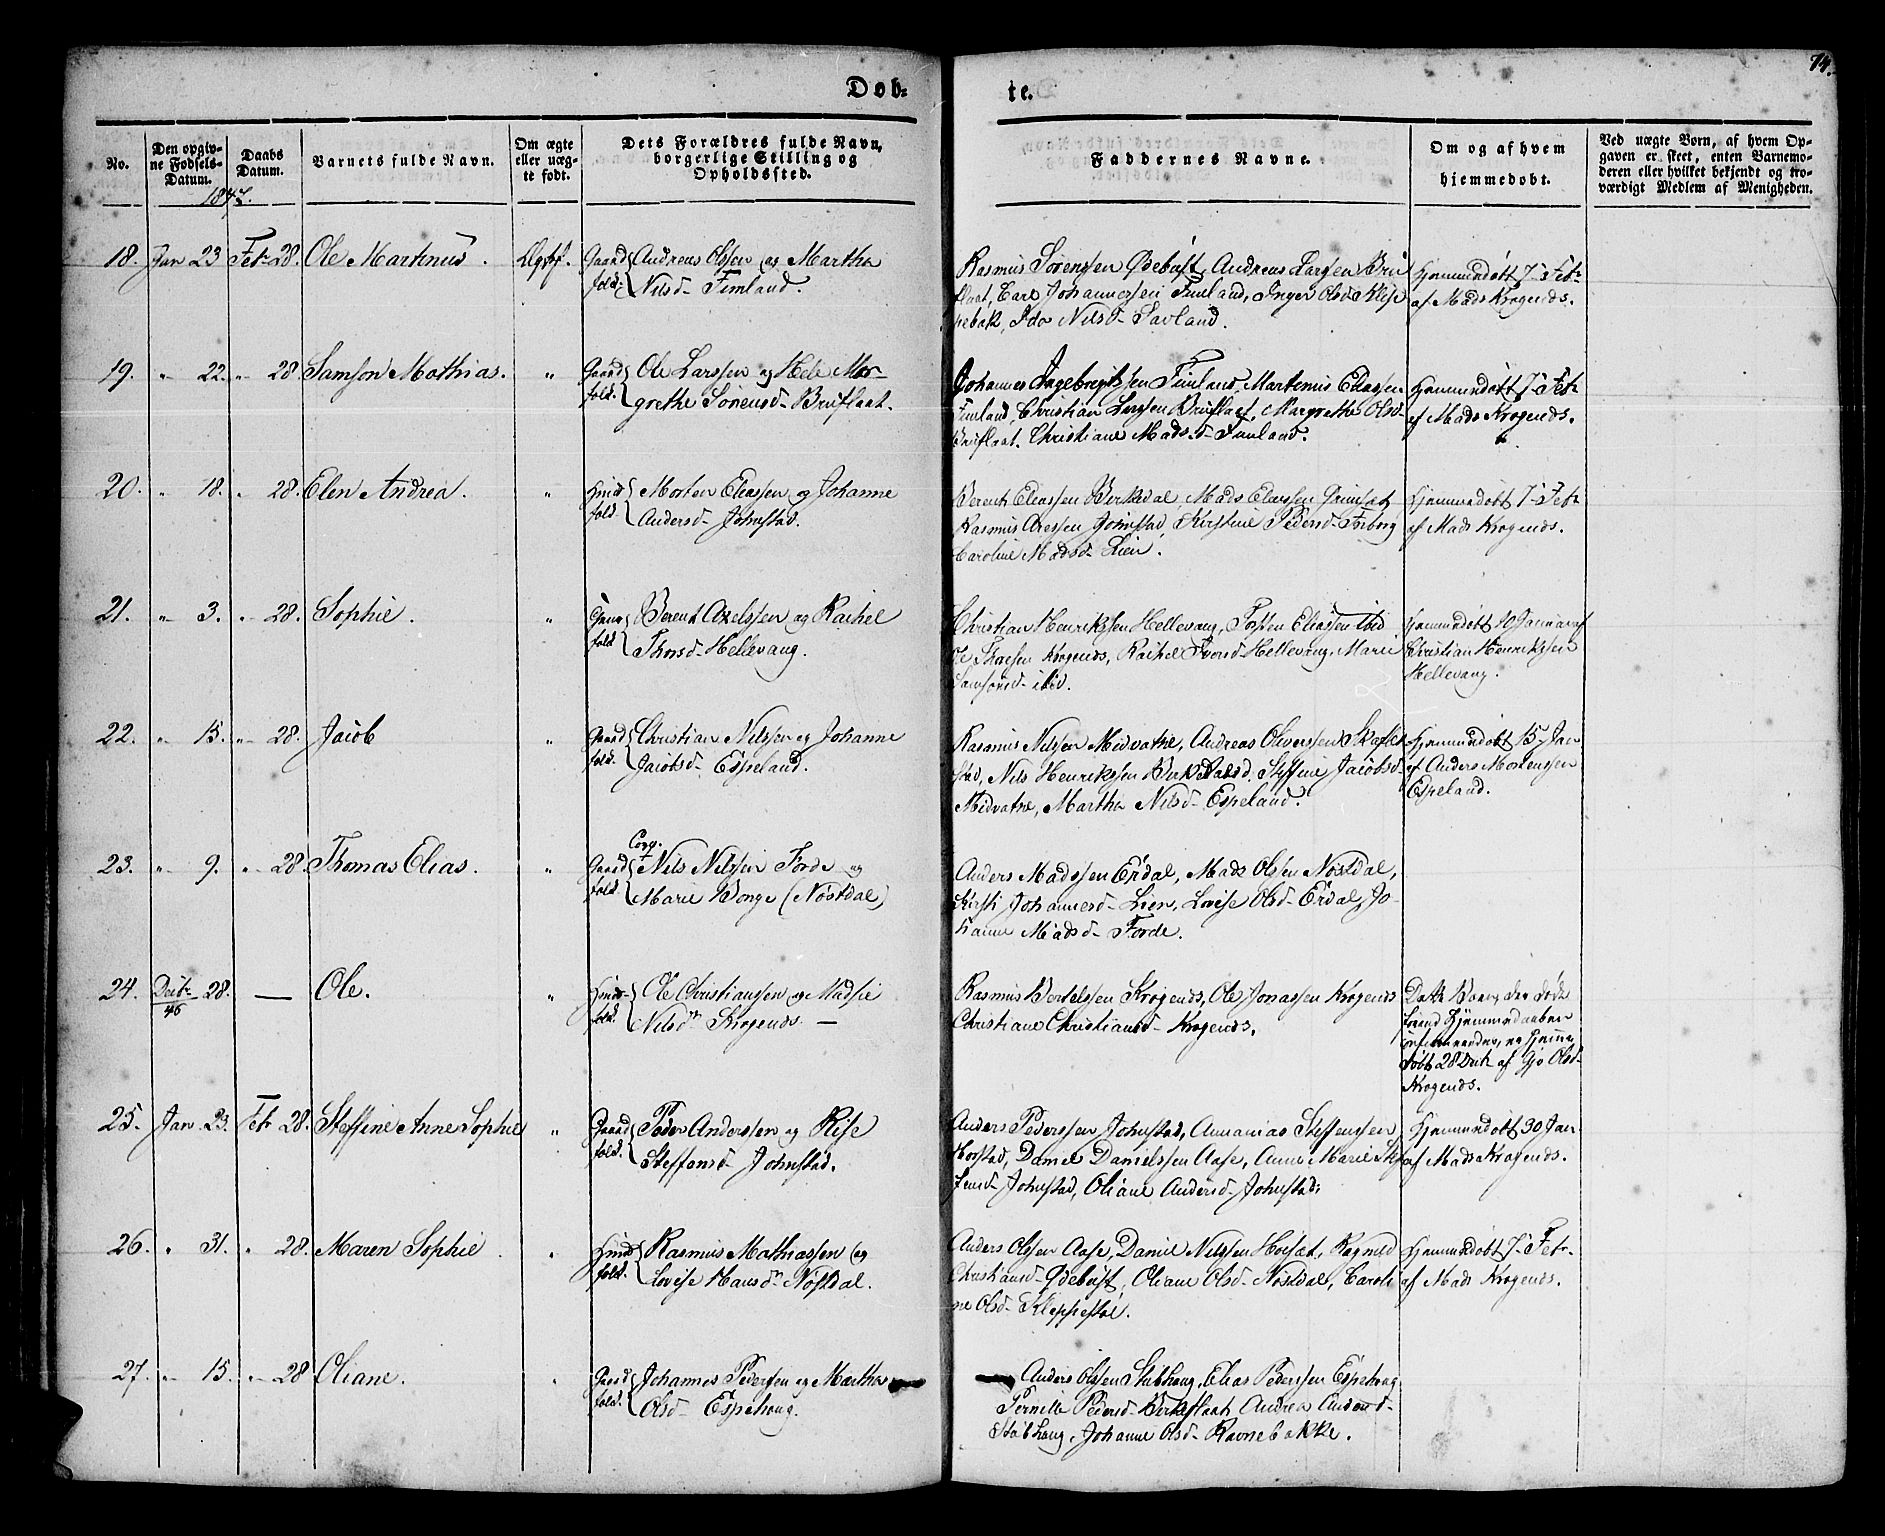 74.
Døb-
te.
No.
Den opgiv-
ne Fødsels-
Datum.
Daabs
Datum.
Barnets fulde Navn.
Om ægte
eller uæg-
te født.
Dets Forældres fulde Navn,
borgerlige Stilling og
Opholdssted.
Faddernes Navne.
Om og af hvem
hjemmedøbt.
Ved uægte Børn, af hvem Op-
gaven er skeet, enten Barnemo-
deren eller hvilket bekjendt og tro-
værdigt Medlem af Menigheden.
1847.
18. Jan 23 Febr 28. Ole Martinus. Ægtef. Gaard Andreas Olssen og Martha
fold. Nilsd- Fimland.
Rasmus Sørenssen Ødebust, Andreas Larssen Bru
flaat, Carl Johannessen Fimland, Inger Olsd Klipe
pebak, Ida Nilsd- Savland.
Hjemmedøbt 7- Febr
af Mads Krogenes.
19. " 22. " 28. Samson Mathias. " Gaard Ole Larssen og Hele Mar-
fold. grethe Sørensd- Bruflaat.
Johannes Ingebregtssen Fimland, Martinus Eliassen
Fimland, Christian Larssen Bruflaat, Margrethe Olsd-
Bruflaat. Christiane Madsd- Fimland.
Hjemmedøbt 7- Febr
af Mads Krogenes.
20. " 18. " 28. Elen Andrea. " Huus Morten Eliassen og Johanne
fold. Andersd- Johnstad.
Berent Eliassen Birkedal Mads Eliassen Grimsæt
Rasmus Axessen Johnstad, Kirstine Pedersd- Friborg
Caroline Madsd- Lien.
Hjemmedøbt 7- Febr
af Mads Krogenes.
21. " 3. " 28. Sophie. " Gaar Berent Axelssen og Rachel
fold Thorsd- Hellevang.
Christian Henrikssen Hellevang, Torsten Eliassen ibid
Ole Krogenes, Rachel Iversd Hellevang, Marie
Samsonsd- ibid.
Hjemmedøbt 10 Januar af
Christian Henrikssen
Hellevang.
22. " 15. " 28. Jacob " Gaard Christian Nilssen og Johanne
fold. Jacobsd- Espeland.
Rasmus Nilssen Midvatne, Andreas Oliverssen Skaflestad, Nils Henrikssen Steffine Jacobsd-
Midvatne, Martha Nilsd- Espeland.
Hjemmedøbt 15- Jan
af Anders Mortenssen
Espeland.
23. " 9. " 28. Thomas Elias. " Gaard Corp. Nils Nilssen Førde og
fold. Marie Bonge (Nøstdal)
Anders Madssen Erdal, Mads Olssen Nøstdal,
Kirsti Johannesd- Lien, Lovise Olsd- Erdal, Jo-
hanne Madsd- Førde.
24. Decbr 28. — Ole. " Huus- Ole Christianssen og Madsie
46 fold. Nilsdr Krogenes. —
Rasmus Bertelssen Krogenes, Ole Jonassen Krogenes
Christiane Christiansd- Krogenes.
Dette Barn er døde
førend Hjemmedaaben
, og Hjemme
døbt 28 Decbr af Ole Olsd-
Krogenes.
25. Jan 23. Febr 28. Steffine Anne Sophie " Gaard Peder Anderssen og Rise
fold. Steffensd- Johnstad.
Anders Pederssen Johnstad, Annanias Steffenssen
Horstad, Daniel Danielssen Aase, Anne Marie Stef
fensd- Johnstad, Oliane Andersd- Johnstad.
Hjemmedøbt 30 Jan
af Mads Krogenes.
26. " 31. " 28. Maren Sophie " Huus Rasmus Mathiassen og
fold. Lovise Hansdr Nøstdal.
Anders Olssen Aase, Daniel Nilssen Hofsæt, Ragnild
Christiansd- Ødebust, Oliane Olsd- Nøstdal, Caroli
ne Olsd- Kleppestøl.
Hjemmedøbt 7- Febr.
af Mads Krogenes.
27. " 15. " 28 Oliane. " Gaard Johannes Pederssen og Martha
fold. Olsd- Espehaug.
Anders Olssen Stubhaug, Elias Pederssen Espehaug
Pernille Pedersd- Birkeflaat, Andrea Andersd-
Stubhaug, Johanne Olsd- Ravnebakke.